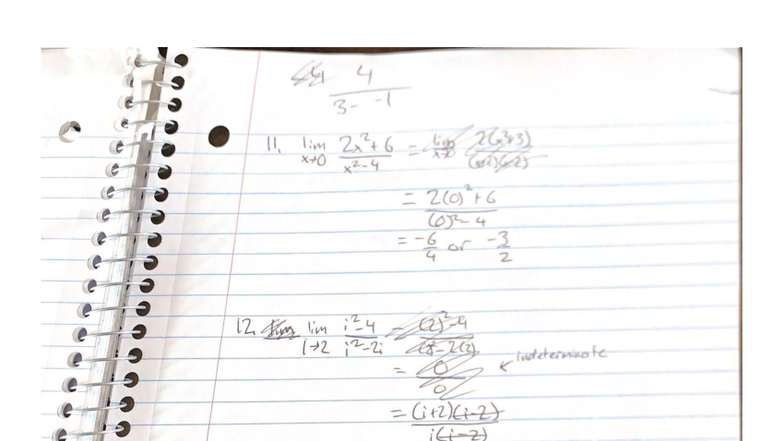 4
3 - -1
11. lim x→0 2x²+6 / x²-4 = lim x→0 2(x²+3) / (x+2)(x-2)
= 2(0)²+6 / (0)²-4
= -6/4 or -3/2
12. lim i→2 i²-4 / i²-2i = (2)²-4 / (2)²-2(2)
= 0/0 ← indeterminate
= (i+2)(i-2) / i(i-2)